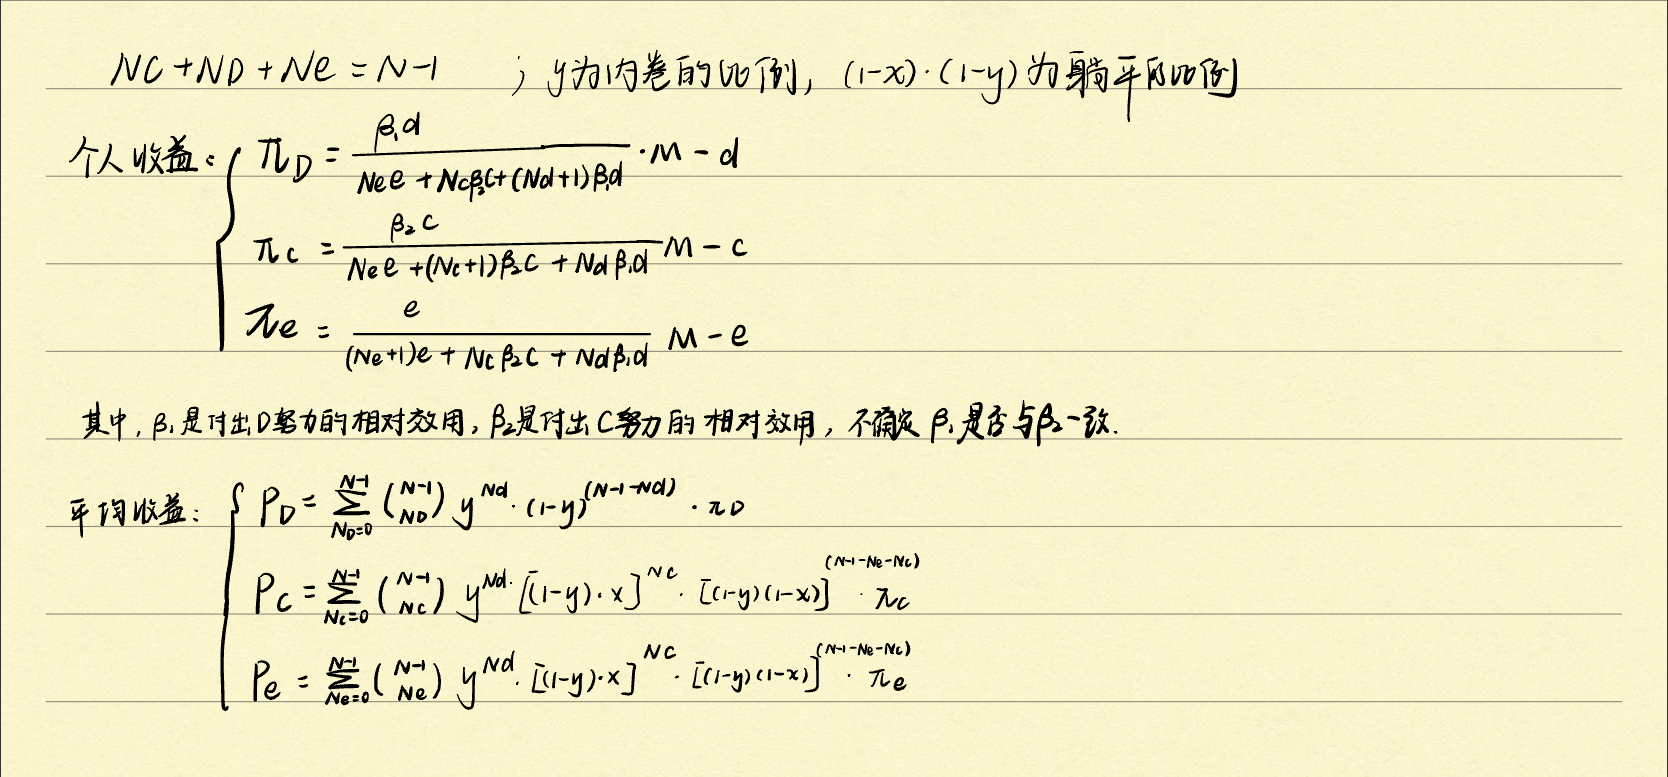 NC+ND+Ne=N-1 ; y为内卷的比例, (1-x)·(1-y)为躺平的比例
个人收益: { π_D = β₁d / (Ne e + Nc β₂c + (Nd+1) β₁d) · M - d
π_c = β₂c / (Ne e + (Nc+1) β₂c + Nd β₁d) M - c
π_e = e / ((Ne+1)e + Nc β₂c + Nd β₁d) M - e
其中, β₁是付出D努力的相对效用, β₂是付出C努力的相对效用, 不确定β₁是否与β₂一致.
平均收益: { P_D = ∑_{N_D=0}^{N-1} (N-1 ND) y^{Nd} · (1-y)^{(N-1-Nd)} · π_D
P_C = ∑_{Nc=0}^{N-1} (N-1 NC) y^{Nd} · [(1-y)·x]^{NC} · [(1-y)(1-x)]^{(N-1-Ne-Nc)} · π_c
P_e = ∑_{Ne=0}^{N-1} (N-1 Ne) y^{Nd} · [(1-y)·x]^{NC} · [(1-y)(1-x)]^{(N-1-Ne-Nc)} · π_e